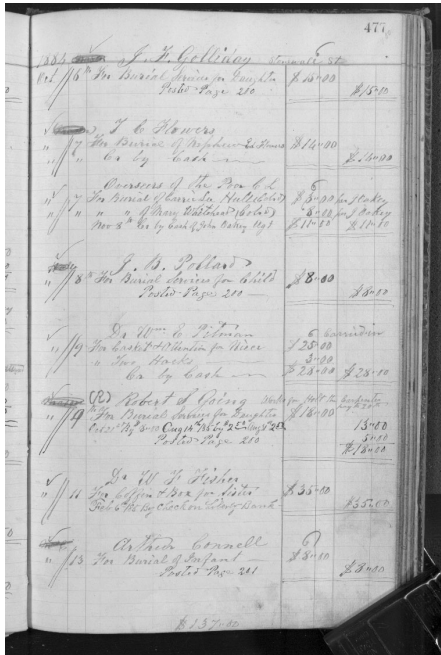 477
1884 J. F. Golliday
Oct. 6th For Burial Services for Daughter $15-00
Posted Page 210 $15-00
T C Flowers
" 7 For Burial of Nephew $14-00
" " Cr by Cash $14-00
Overseers of the Poor C. C.
" 7 For Burial of $6-00 for J Oakey
" " " of Mary (Colored) 5-00 for J Oakey
Nov 8th Cr by Cash of John Oakey $11-00 $11-00
J. B. Pollard
" 8th For Burial Services for Child $8-00
Posted Page 210 $8-00
Dr Wm C Pitman
" 9 For Casket & Attention for Niece $25-00
" Two Hacks 3-00
Cr by Cash $28-00 $28-00
Robert S Going
" 9th For Burial Services for Daughter $18-00
13-00
5-00
Posted Page 210 $18-00
Dr W F Fisher
" 11 For Coffin & Box for Sister $35-00
By Check on Bank $35-00
Arthur Connell
" 13 For Burial of Infant $8-00
Posted Page 211 $8-00
$137-00